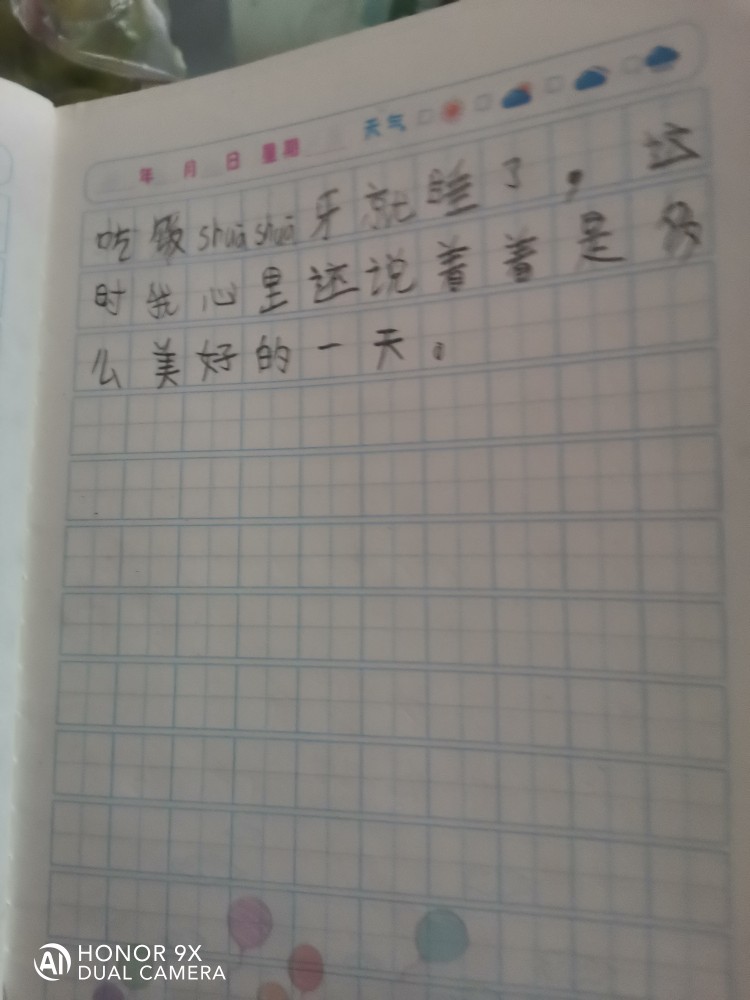 年 月 日 星期 天气
吃饭shuā shuā牙就睡了，这
时我心里还说着着是多
么美好的一天。
HONOR 9X
DUAL CAMERA